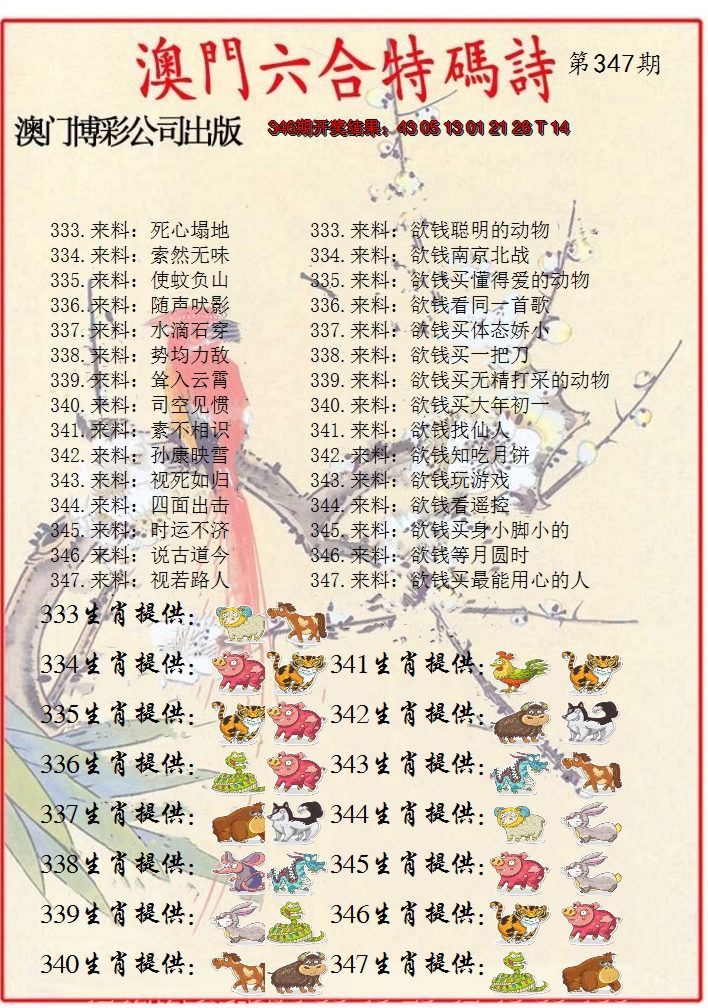 澳門六合特碼詩 第347期
澳门博彩公司出版 346期开奖结果：43 05 13 01 21 26 T 14
333.来料：死心塌地 333.来料：欲钱聪明的动物
334.来料：索然无味 334.来料：欲钱南京北战
335.来料：使蚊负山 335.来料：欲钱买懂得爱的动物
336.来料：随声吠影 336.来料：欲钱看同一首歌
337.来料：水滴石穿 337.来料：欲钱买体态娇小
338.来料：势均力敌 338.来料：欲钱买一把刀
339.来料：耸入云霄 339.来料：欲钱买无精打采的动物
340.来料：司空见惯 340.来料：欲钱买大年初一
341.来料：素不相识 341.来料：欲钱找仙人
342.来料：孙康映雪 342.来料：欲钱知吃月饼
343.来料：视死如归 343.来料：欲钱玩游戏
344.来料：四面出击 344.来料：欲钱看遥控
345.来料：时运不济 345.来料：欲钱买身小脚小的
346.来料：说古道今 346.来料：欲钱等月圆时
347.来料：视若路人 347.来料：欲钱买最能用心的人
333生肖提供：
334生肖提供： 341生肖提供：
335生肖提供： 342生肖提供：
336生肖提供： 343生肖提供：
337生肖提供： 344生肖提供：
338生肖提供： 345生肖提供：
339生肖提供： 346生肖提供：
340生肖提供： 347生肖提供：